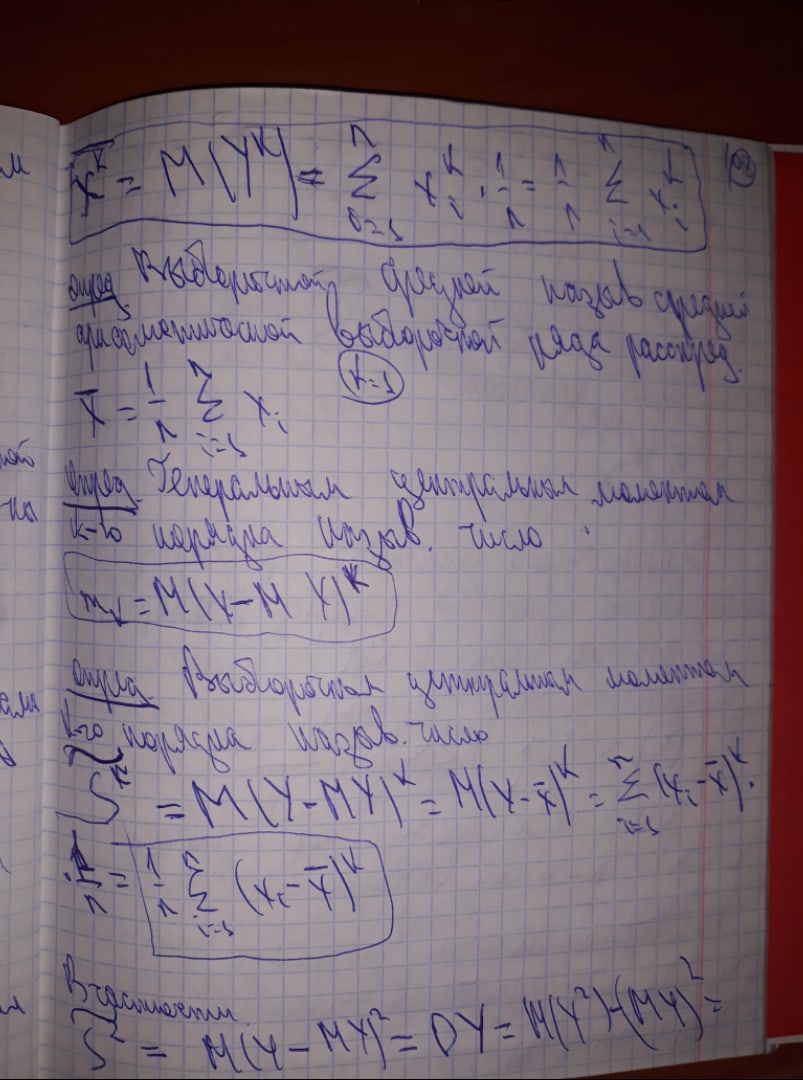 x̄^k = M(Y^k) = Σ_{i=1}^{n} x_i^k · 1/n = 1/n Σ_{i=1}^{n} x_i^k
опред. Выборочной средней назыв средней
арифметической выборочной ряда распред.
x̄ = 1/n Σ_{i=1}^{n} x_i k=1
опред Генеральным центральным моментом
k-го порядка назыв. число
m_k = M(X - M X)^k
опред Выборочным центральным моментом
k-го порядка назыв. число
S̃^k = M(Y - MY)^k = M(Y - x̄)^k = Σ_{i=1}^{n} (x_i - x̄)^k ·
· 1/n = 1/n Σ_{i=1}^{n} (x_i - x̄)^k
В частности
S̃^2 = M(Y - MY)^2 = DY = M(Y^2) - (MY)^2 =